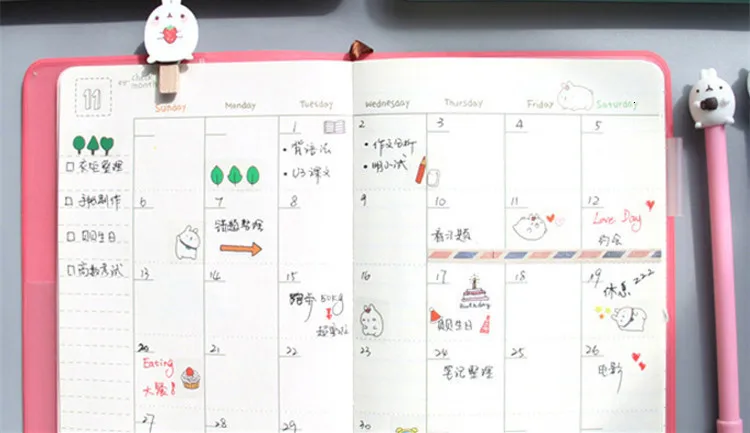 11
check
month
Sunday Monday Tuesday Wednesday Thursday Friday Saturday
1 2 3 4 5
• 背语法
• U3 课文
• 作文分析
• 明小试
衣柜整理
手帐制作
贝贝生日
高数考试
6 7 8 9 10 11 12
错题整理
看习题
Love Day
约会
13 14 15 16 17 18 19
跑步
5Kg
Birthday
贝贝生日
休息 zzz
20 21 22 23 24 25 26
Eating
大餐!
笔记整理
电影
27 28 29 30